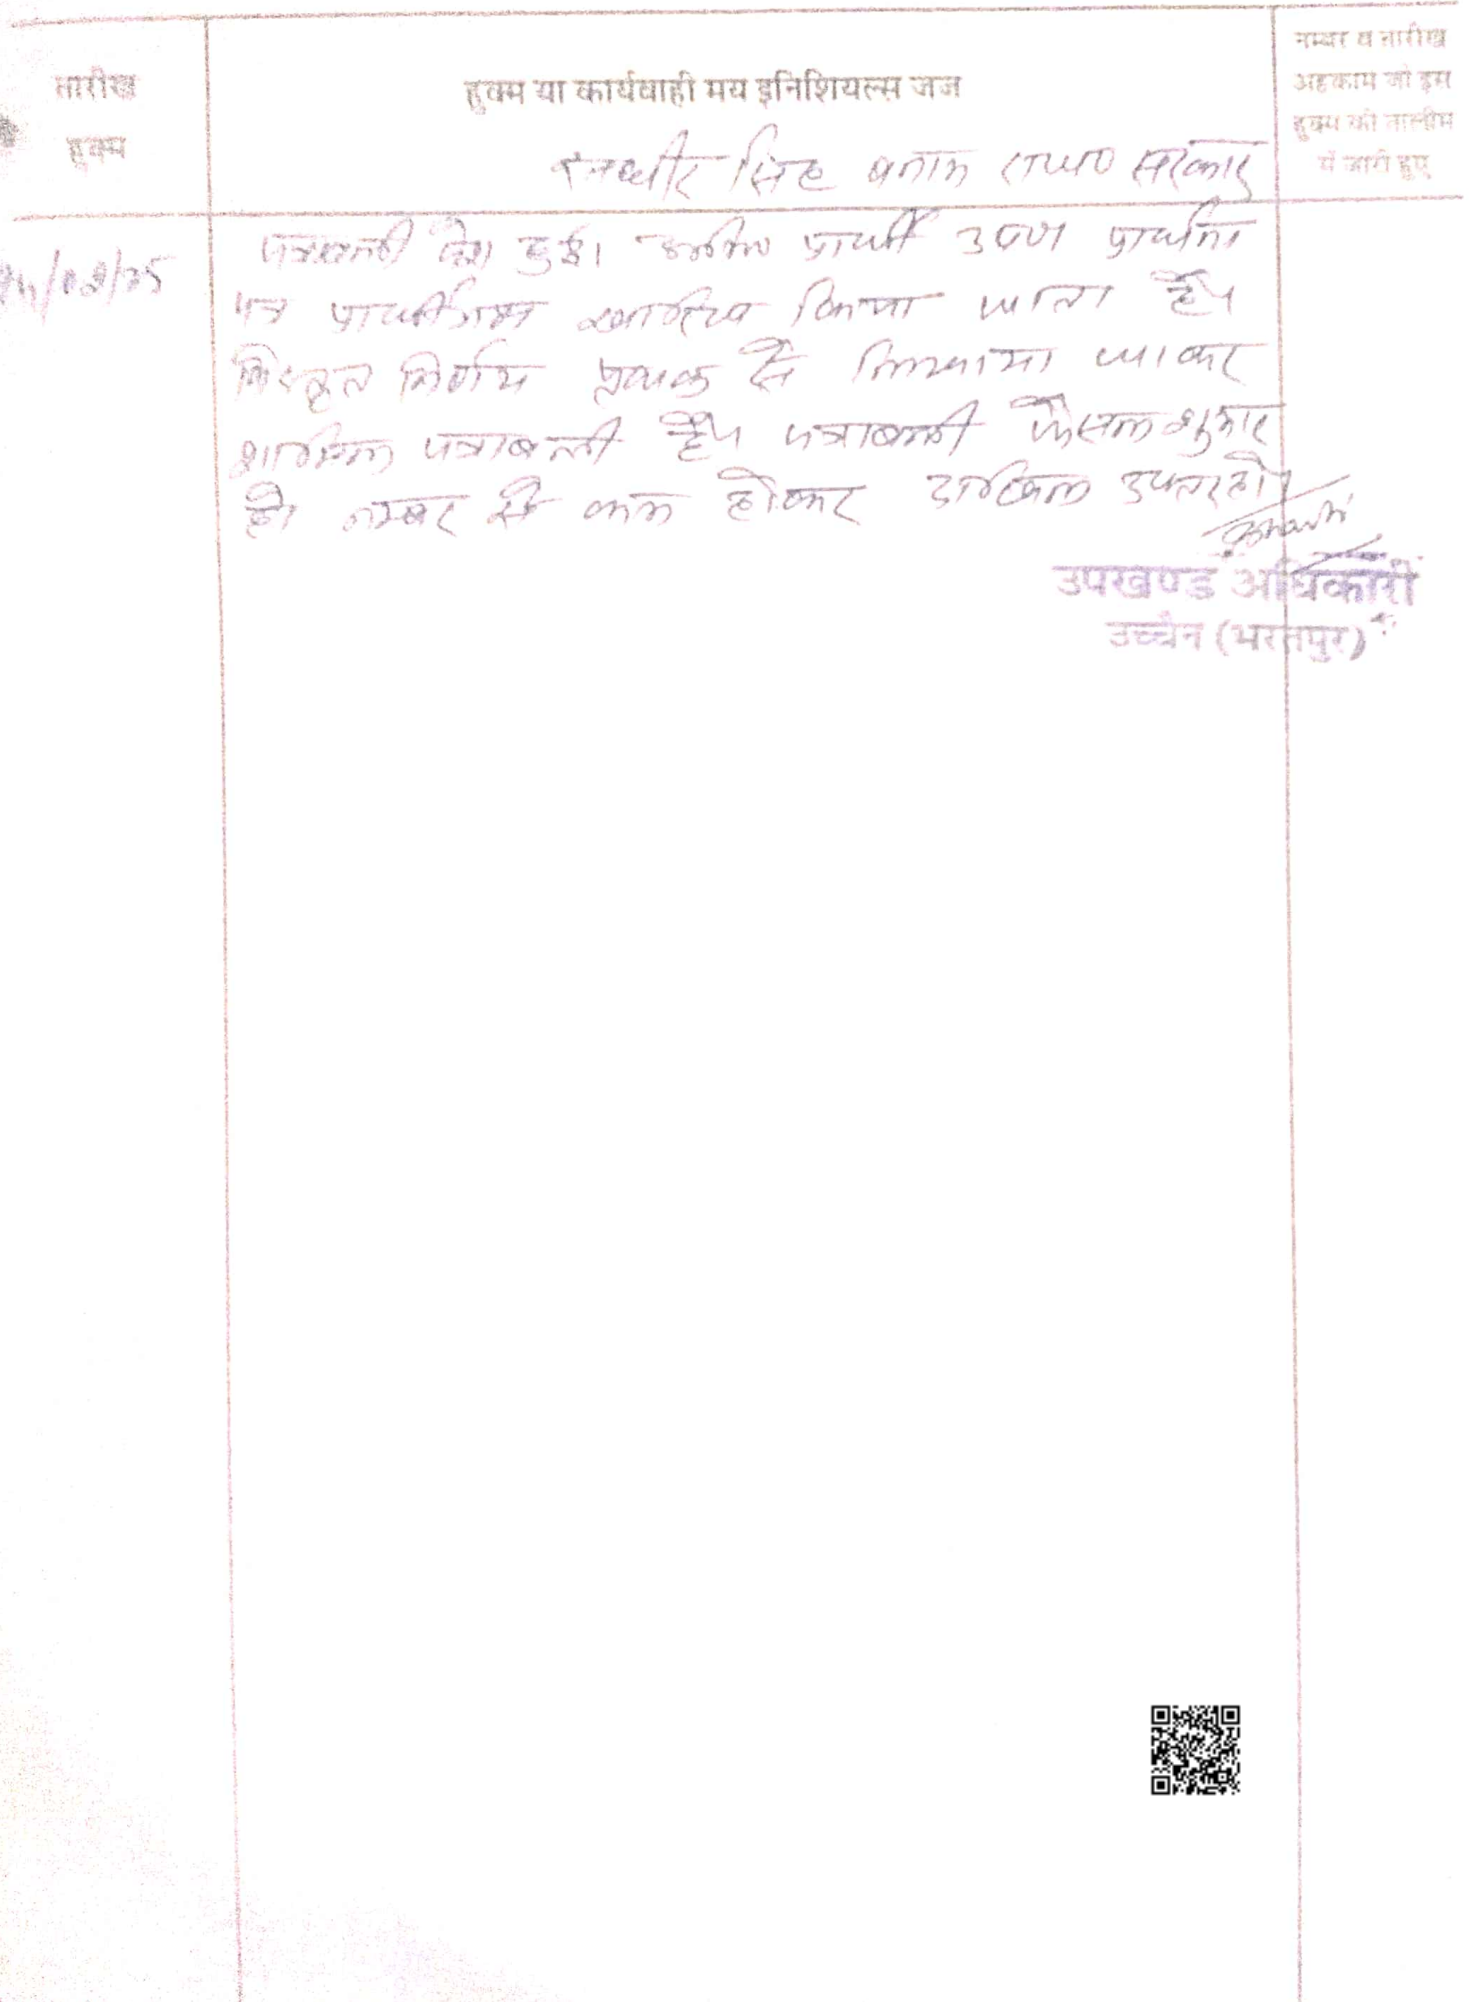 तारीख
हुक्म
हुक्म या कार्यवाही मय इनिशियल्स जज
नम्बर व तारीख
अहकाम जो इस
हुक्म की तामील
में जारी हुए
सिंह बनाम राज0 सरकार
पत्रावली पेश हुई। वकील प्रार्थी उप0 प्रार्थना
पत्र प्रार्थीगण खारिज किया जाता है।
विस्तृत निर्णय पृथक से लिखाया जाकर
शामिल पत्रावली है। पत्रावली फैसल शुमार
हो नम्बर से कम होकर दाखिल दफ्तर हो।
उपखण्ड अधिकारी
उच्चैन (भरतपुर)